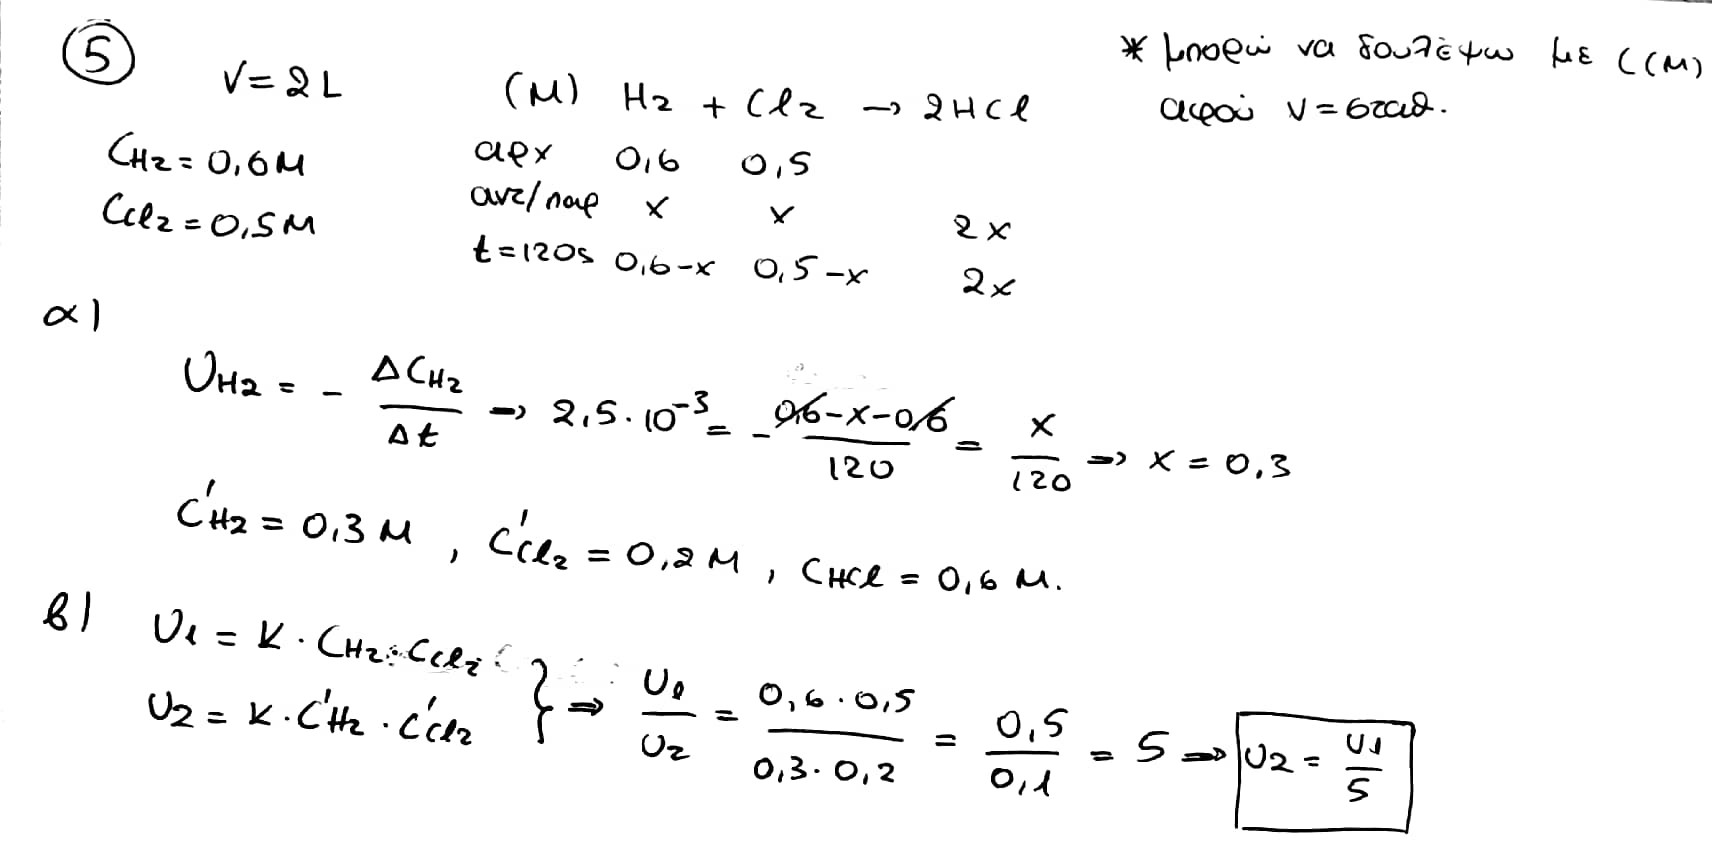 5
V=2L
C_H2 = 0,6M
C_Cl2 = 0,5M
(M) H2 + Cl2 → 2HCl
αρχ 0,6 0,5
αντ/παρ x x 2x
t=120s 0,6-x 0,5-x 2x
* μπορώ να δουλέψω με C(M)
αφού V=σταθ.
α)
U_H2 = - ΔC_H2/Δt → 2,5·10^-3 = - (0,6-x-0,6)/120 = x/120 ⇒ x = 0,3
C'_H2 = 0,3 M, C'_Cl2 = 0,2 M, C_HCl = 0,6 M.
β)
U1 = K·C_H2·C_Cl2
U2 = K·C'_H2·C'_Cl2
} ⇒ U1/U2 = (0,6·0,5)/(0,3·0,2) = 0,5/0,1 = 5 ⇒ U2 = U1/5